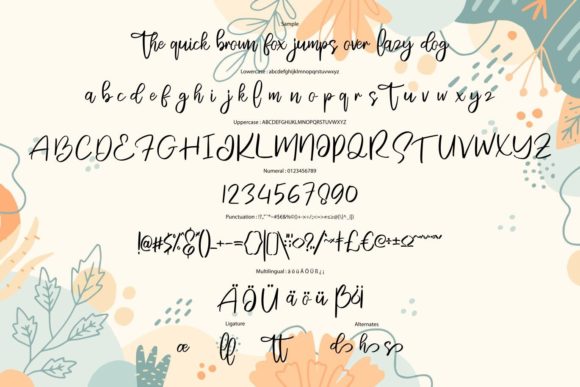 Sample
The quick brown fox jumps over lazy dog
Lowercase : abcdefghijklmnopqrstuvwxyz
a b c d e f g h i j k l m n o p q r s t u v w x y z
Uppercase : ABCDEFGHIJKLMNOPQRSTUVWXYZ
ABCDEFGHIJKLMNOPQRSTUVWXYZ
Numeral : 0123456789
1234567890
Punctuation :
!@#$%&()_+-={}|[]\:;<>?,/
Multilingual : ä ö ü Ä Ö Ü ß ¿ ¡
Ä Ö Ü ä ö ü ß
Ligature Alternates
æ ff tt do ho so